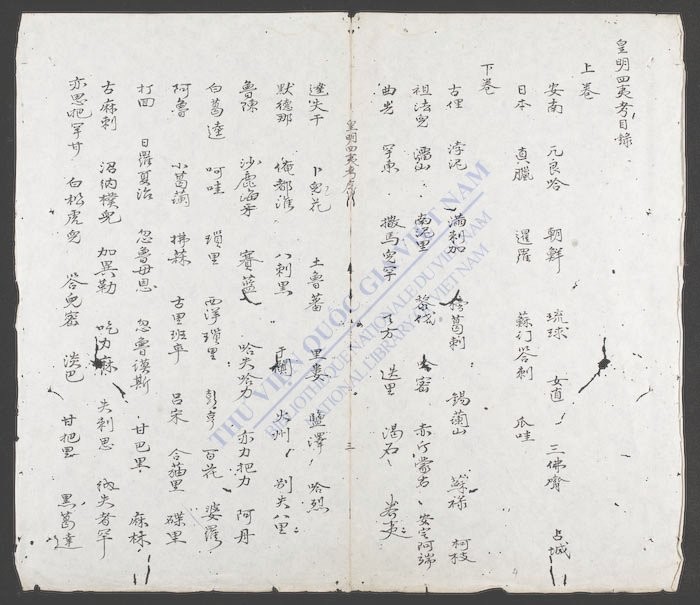 皇明四夷考目錄
上卷
安南 兀良哈 朝鮮 琉球 女直 三佛齊 占城
日本 真臘 暹羅 蘇門答剌 爪哇
下卷
古俚 浡泥 滿剌加 榜葛剌 錫蘭山 蘇祿 柯枝
祖法兒 溜山 南泥里 黎伐 哈密 赤斤蒙古 安定阿端
曲先 罕東 撒馬兒罕 天方 迭里 渴石 養夷
皇明四夷考序
三
達失干 卜兒花 土魯番 里婁 鹽澤 哈烈
默德那 俺都淮 八剌黑 于闐 火州 別失八里
魯陳 沙鹿海牙 賽藍 哈失哈力 亦力把力 阿丹
白葛達 呵哇 瑣里 西洋瑣里 彭亨 百花 婆羅
阿魯 小葛蘭 拂菻 古里班卒 呂宋 合貓里 碟里
打回 日羅夏治 忽魯母恩 忽魯謨斯 甘巴里 麻林
古麻剌 沼納樸兒 加異勒 吃力麻 失剌思 納失者罕
亦思把罕 甘 白松虎兒 答兒密 淡巴 甘把里 黑葛達
THƯ VIỆN QUỐC GIA VIỆT NAM
BIBLIOTHEQUE NATIONALE DU VIETNAM
NATIONAL LIBRARY OF VIETNAM